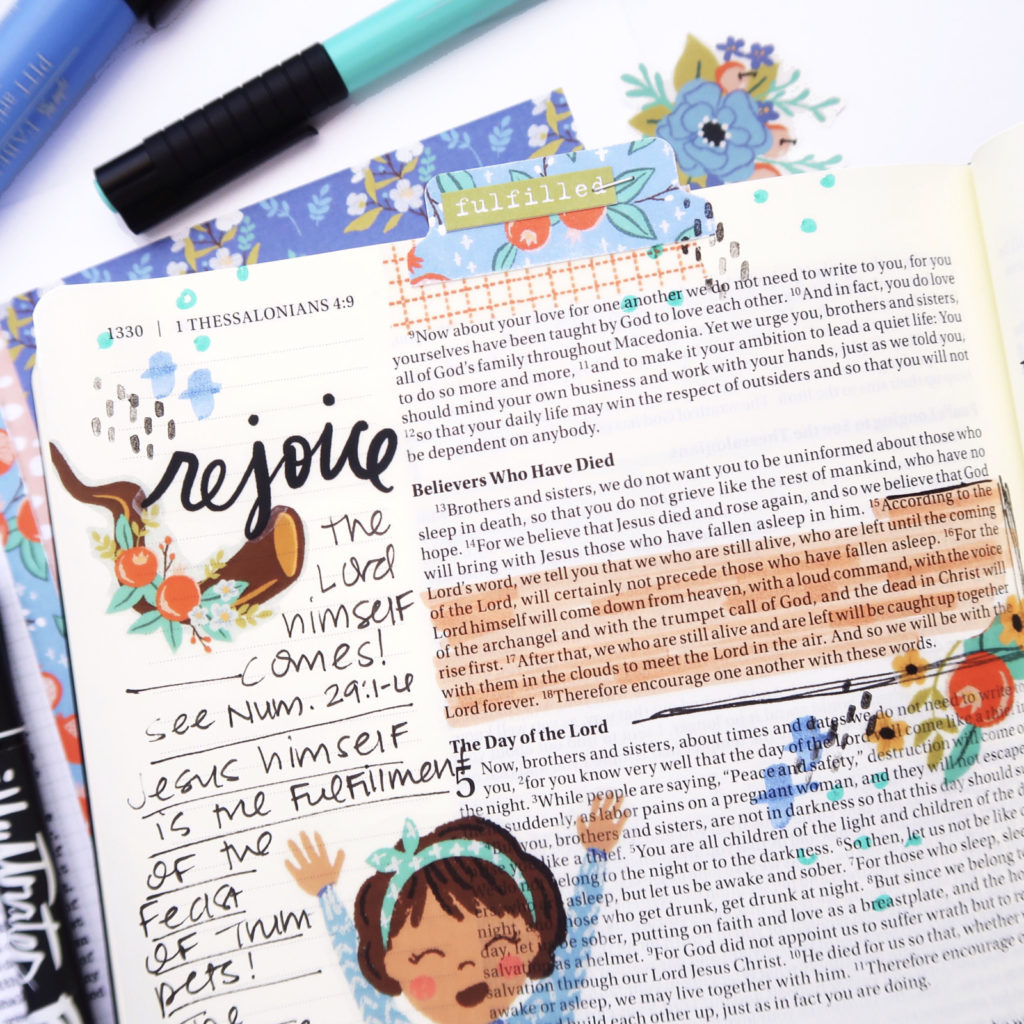 PITT
fulfilled
1330 | 1 THESSALONIANS 4:9
rejoice
the
Lord
himself
comes!
see Num. 29:1-6
Jesus himself
is the Fulfillment
of the
Feast
of Trum
pets!
The
9Now about your love for one another we do not need to write to you, for you
yourselves have been taught by God to love each other. 10And in fact, you do love
all of God's family throughout Macedonia. Yet we urge you, brothers and sisters,
to do so more and more, 11and to make it your ambition to lead a quiet life: You
should mind your own business and work with your hands, just as we told you,
12so that your daily life may win the respect of outsiders and so that you will not
be dependent on anybody.
Believers Who Have Died
13Brothers and sisters, we do not want you to be uninformed about those who
sleep in death, so that you do not grieve like the rest of mankind, who have no
hope. 14For we believe that Jesus died and rose again, and so we believe that God
will bring with Jesus those who have fallen asleep in him. 15According to the
Lord's word, we tell you that we who are still alive, who are left until the coming
of the Lord, will certainly not precede those who have fallen asleep. 16For the
Lord himself will come down from heaven, with a loud command, with the voice
of the archangel and with the trumpet call of God, and the dead in Christ will
rise first. 17After that, we who are still alive and are left will be caught up together
with them in the clouds to meet the Lord in the air. And so we will be with the
Lord forever. 18Therefore encourage one another with these words.
The Day of the Lord
5 Now, brothers and sisters, about times and dates we do not need to write to
you, 2for you know very well that the day of the Lord will come like a thief in
the night. 3While people are saying, "Peace and safety," destruction will come o
suddenly, as labor pains on a pregnant woman, and they will not escape
you, brothers and sisters, are not in darkness so that this day should s
like a thief. 5You are all children of the light and children of the d
belong to the night or to the darkness. 6So then, let us not be like o
asleep, but let us be awake and sober. 7For those who sleep, slee
those who get drunk, get drunk at night. 8But since we belong to
day, let be sober, putting on faith and love as a breastplate, and the ho
salvation as a helmet. 9For God did not appoint us to suffer wrath but to r
salvation through our Lord Jesus Christ. 10He died for us so that, whether
awake or asleep, we may live together with him. 11Therefore encourage o
build each other up, just as in fact you are doing.